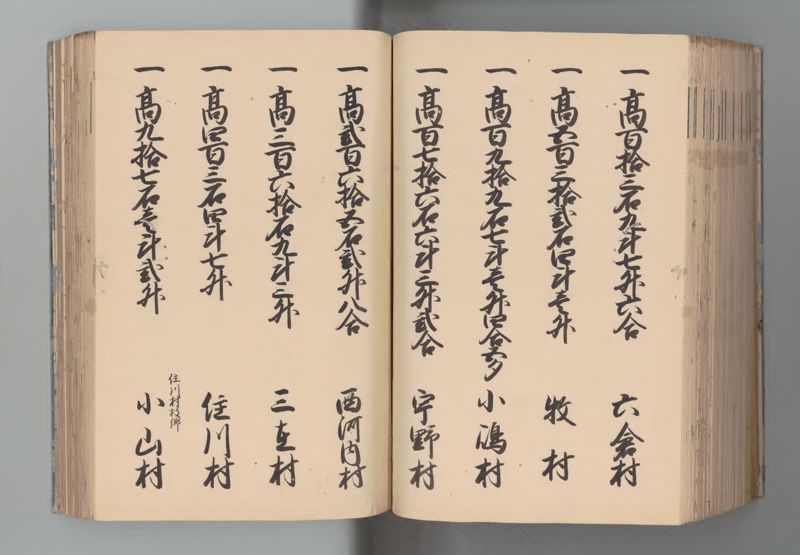 一高百拾三石九斗七升六合 六倉村
一高五百三拾弐石四斗壱升 牧村
一高百九拾九石七斗壱升四合五夕 小嶋村
一高百七拾六石六斗三升弐合 宇野村
一高弐百六拾五石弐升八合 西河内村
一高三百六拾石九斗三升 三在村
一高四百三石四斗七升 住川村
一高九拾七石壱斗弐升 住川村枝郷 小山村